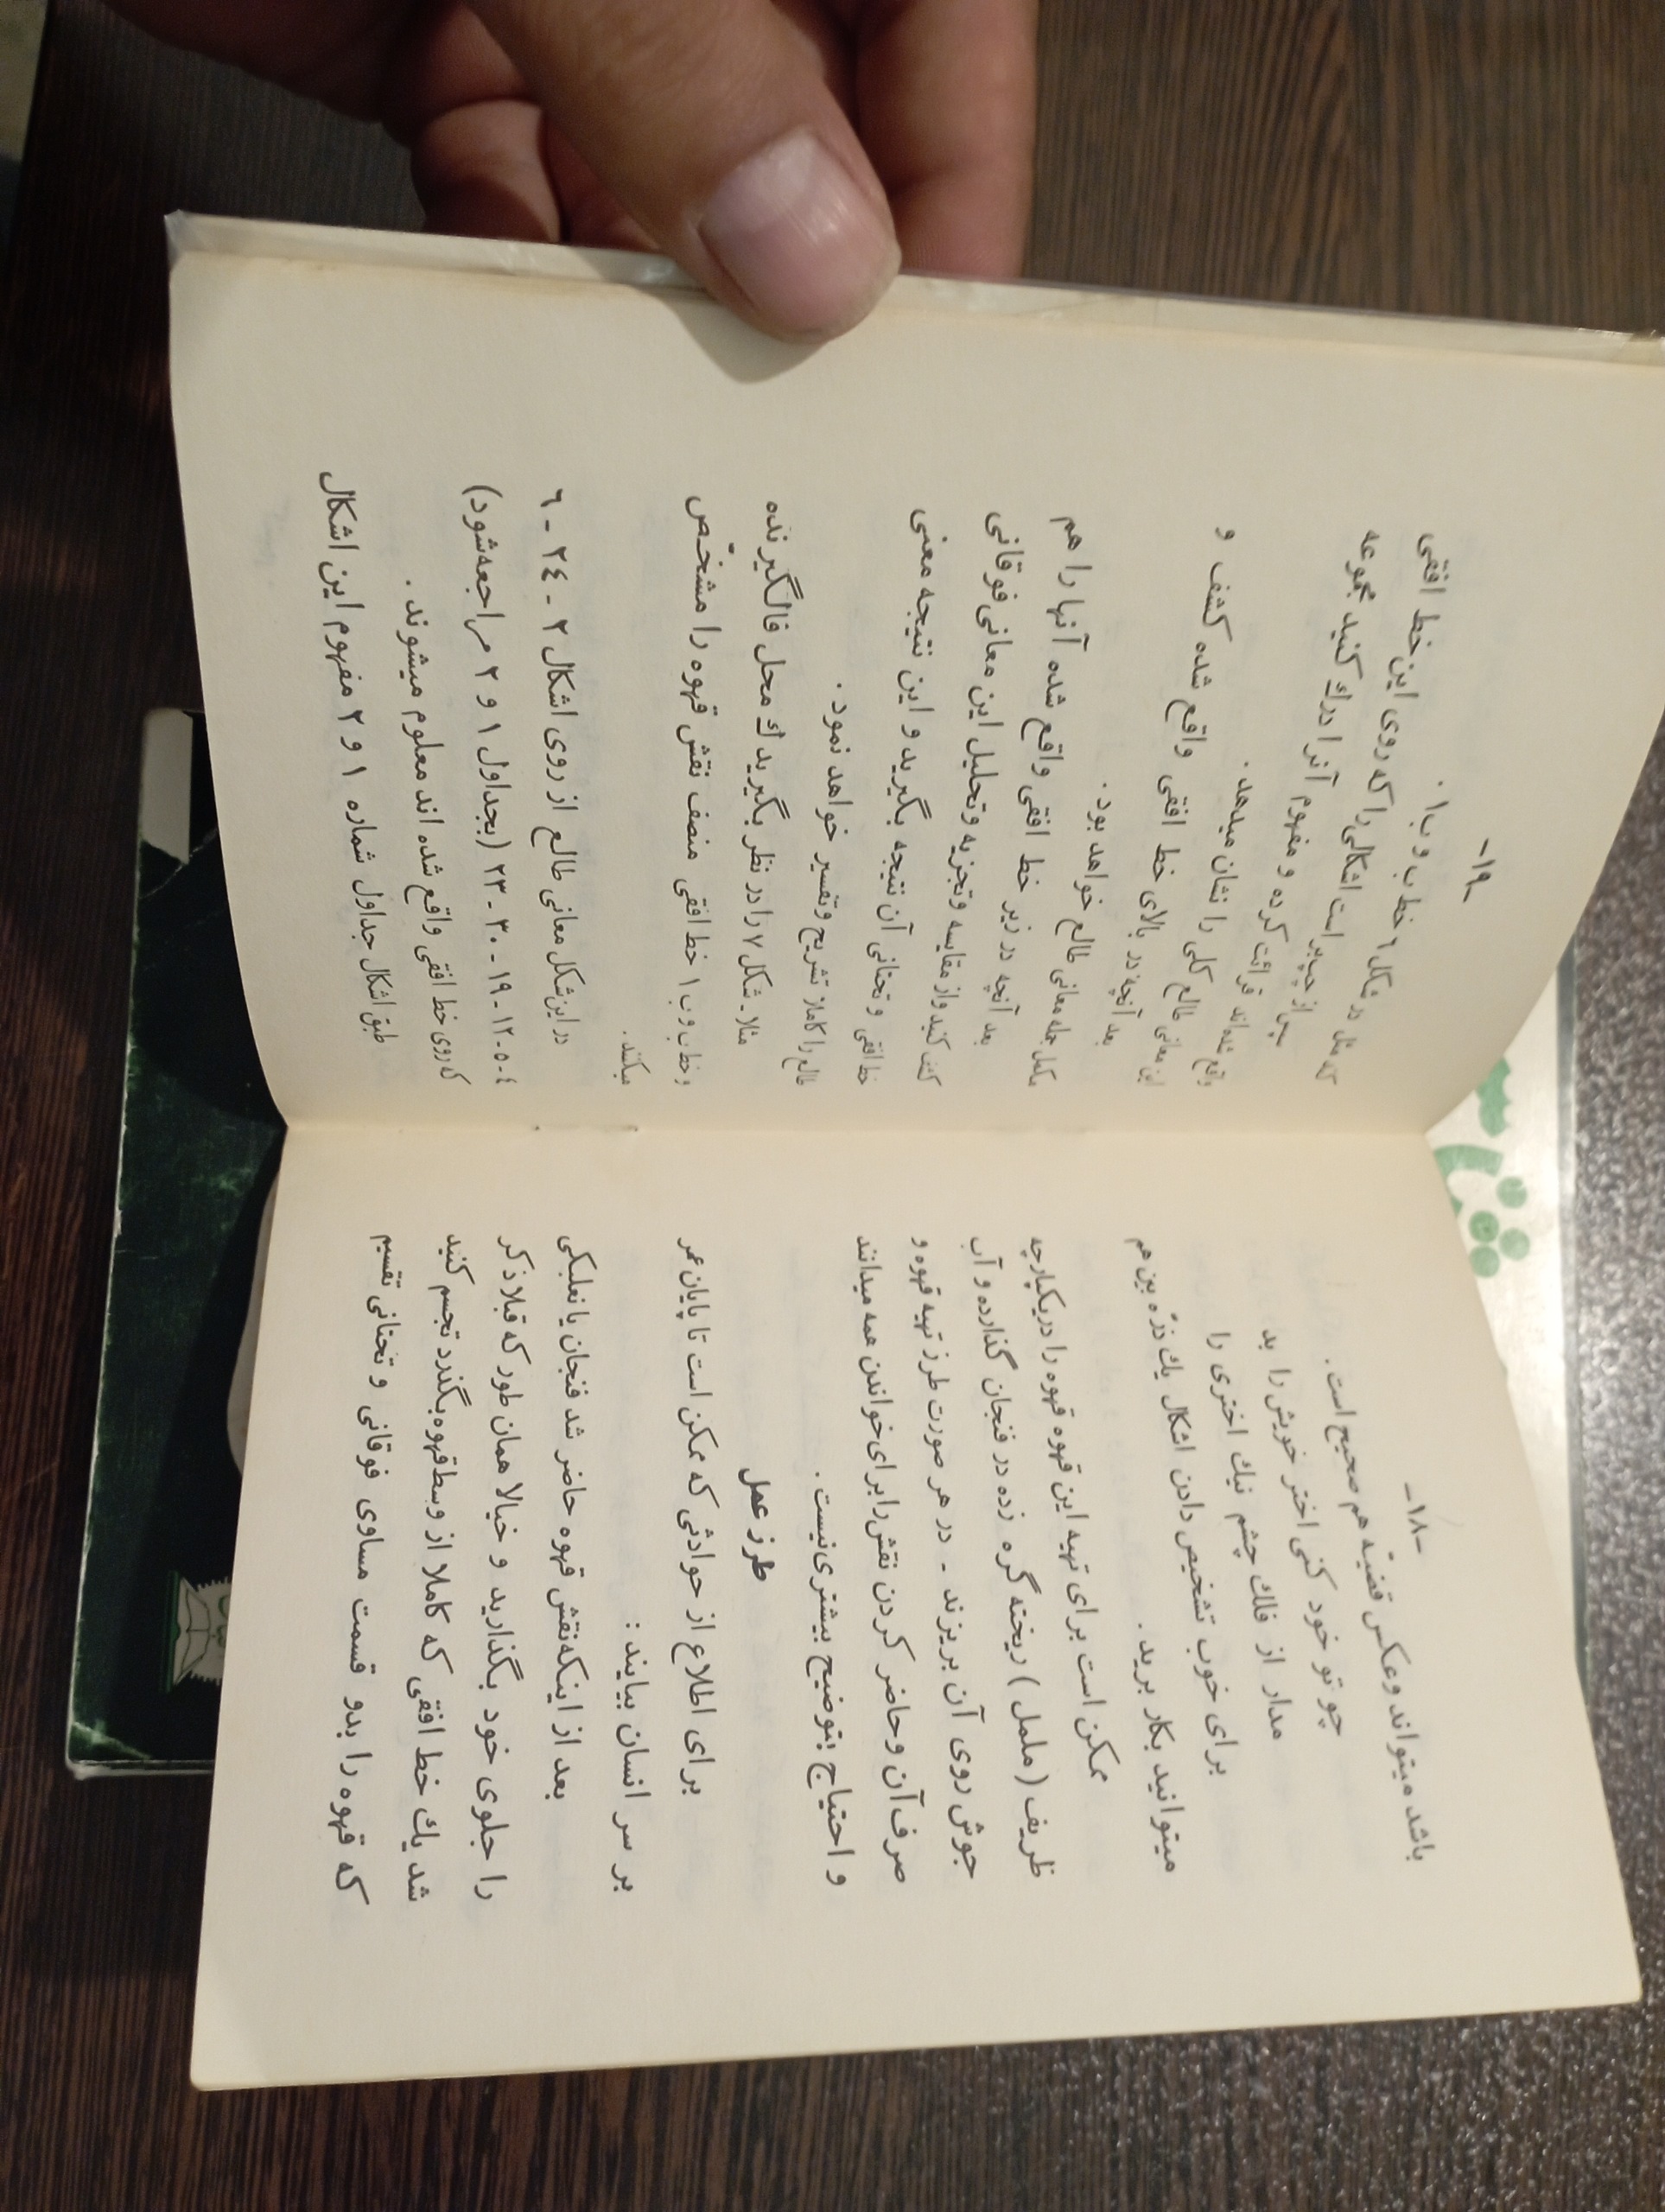 -۱۸-
باشد میتواند وعکس قضیّه هم صحیح است .
چو تو خود کنی اختر خویش را بد
مدار از فلك چشم نیك اختری را
برای خوب تشخیص دادن اشکال یك ذرّه بین هم
میتوانید بکار برید .
ممکن است برای تهیه این قهوه قهوه را دریکپارچه
ظریف ( ململ ) ریخته گره زده در فنجان گذارده و آب
جوش روی آن بریزند - در هر صورت طرز تهیه قهوه و
صرف آن وحاضر کردن نقش را برای خواندن همه میدانند
و احتیاج بتوضیح بیشتری نیست .
طرز عمل
برای اطلاع از حوادثی که ممکن است تا پایان عمر
بر سر انسان بیایند :
بعد از اینکه نقش قهوه حاضر شد فنجان یا نعلبکی
را جلوی خود بگذارید و خیالا همان طور که قبلا ذکر
شد یك خط افقی که کاملا از وسط قهوه بگذرد تجسم کنید
که قهوه را بدو قسمت مساوی فوقانی و تحتانی تقسیم
-۱۹-
که مثل در شکل ٦ خط ب و ب۱ .
پس از چپ براست اشکالی را که روی این خط افقی
واقع شده‌اند قرائت کرده و مفهوم آنرا درك کنید مجموعه
این معانی طالع کلی را نشان میدهد .
بعد آنچه در بالای خط افقی واقع شده کشف و
مکمل جمله معانی طالع خواهد بود .
بعد آنچه در زیر خط افقی واقع شده آنها را هم
کشف کنید واز مقایسه وتجزیه وتحلیل این معانی فوقانی
خط افقی و تحتانی آن نتیجه بگیرید و این نتیجه معنی
طالع را کاملا تشریح وتفسیر خواهد نمود .
مثلا - شکل ۷ را در نظر بگیرید ك محل فالگیرنده
و خط ب و ب ۱ خط افقی منصف نقش قهوه را مشخّص
میکنند .
در این شکل معانی طالع از روی اشکال ۲ - ۲٤ - ٦
٤ - ٥ - ۱۲ - ۱۹ - ۳۰ - ۲۳ (بجداول ۱ و ۲ مراجعه شود)
که روی خط افقی واقع شده اند معلوم میشوند .
طبق اشکال جداول شماره ۱ و ۲ مفهوم این اشکال